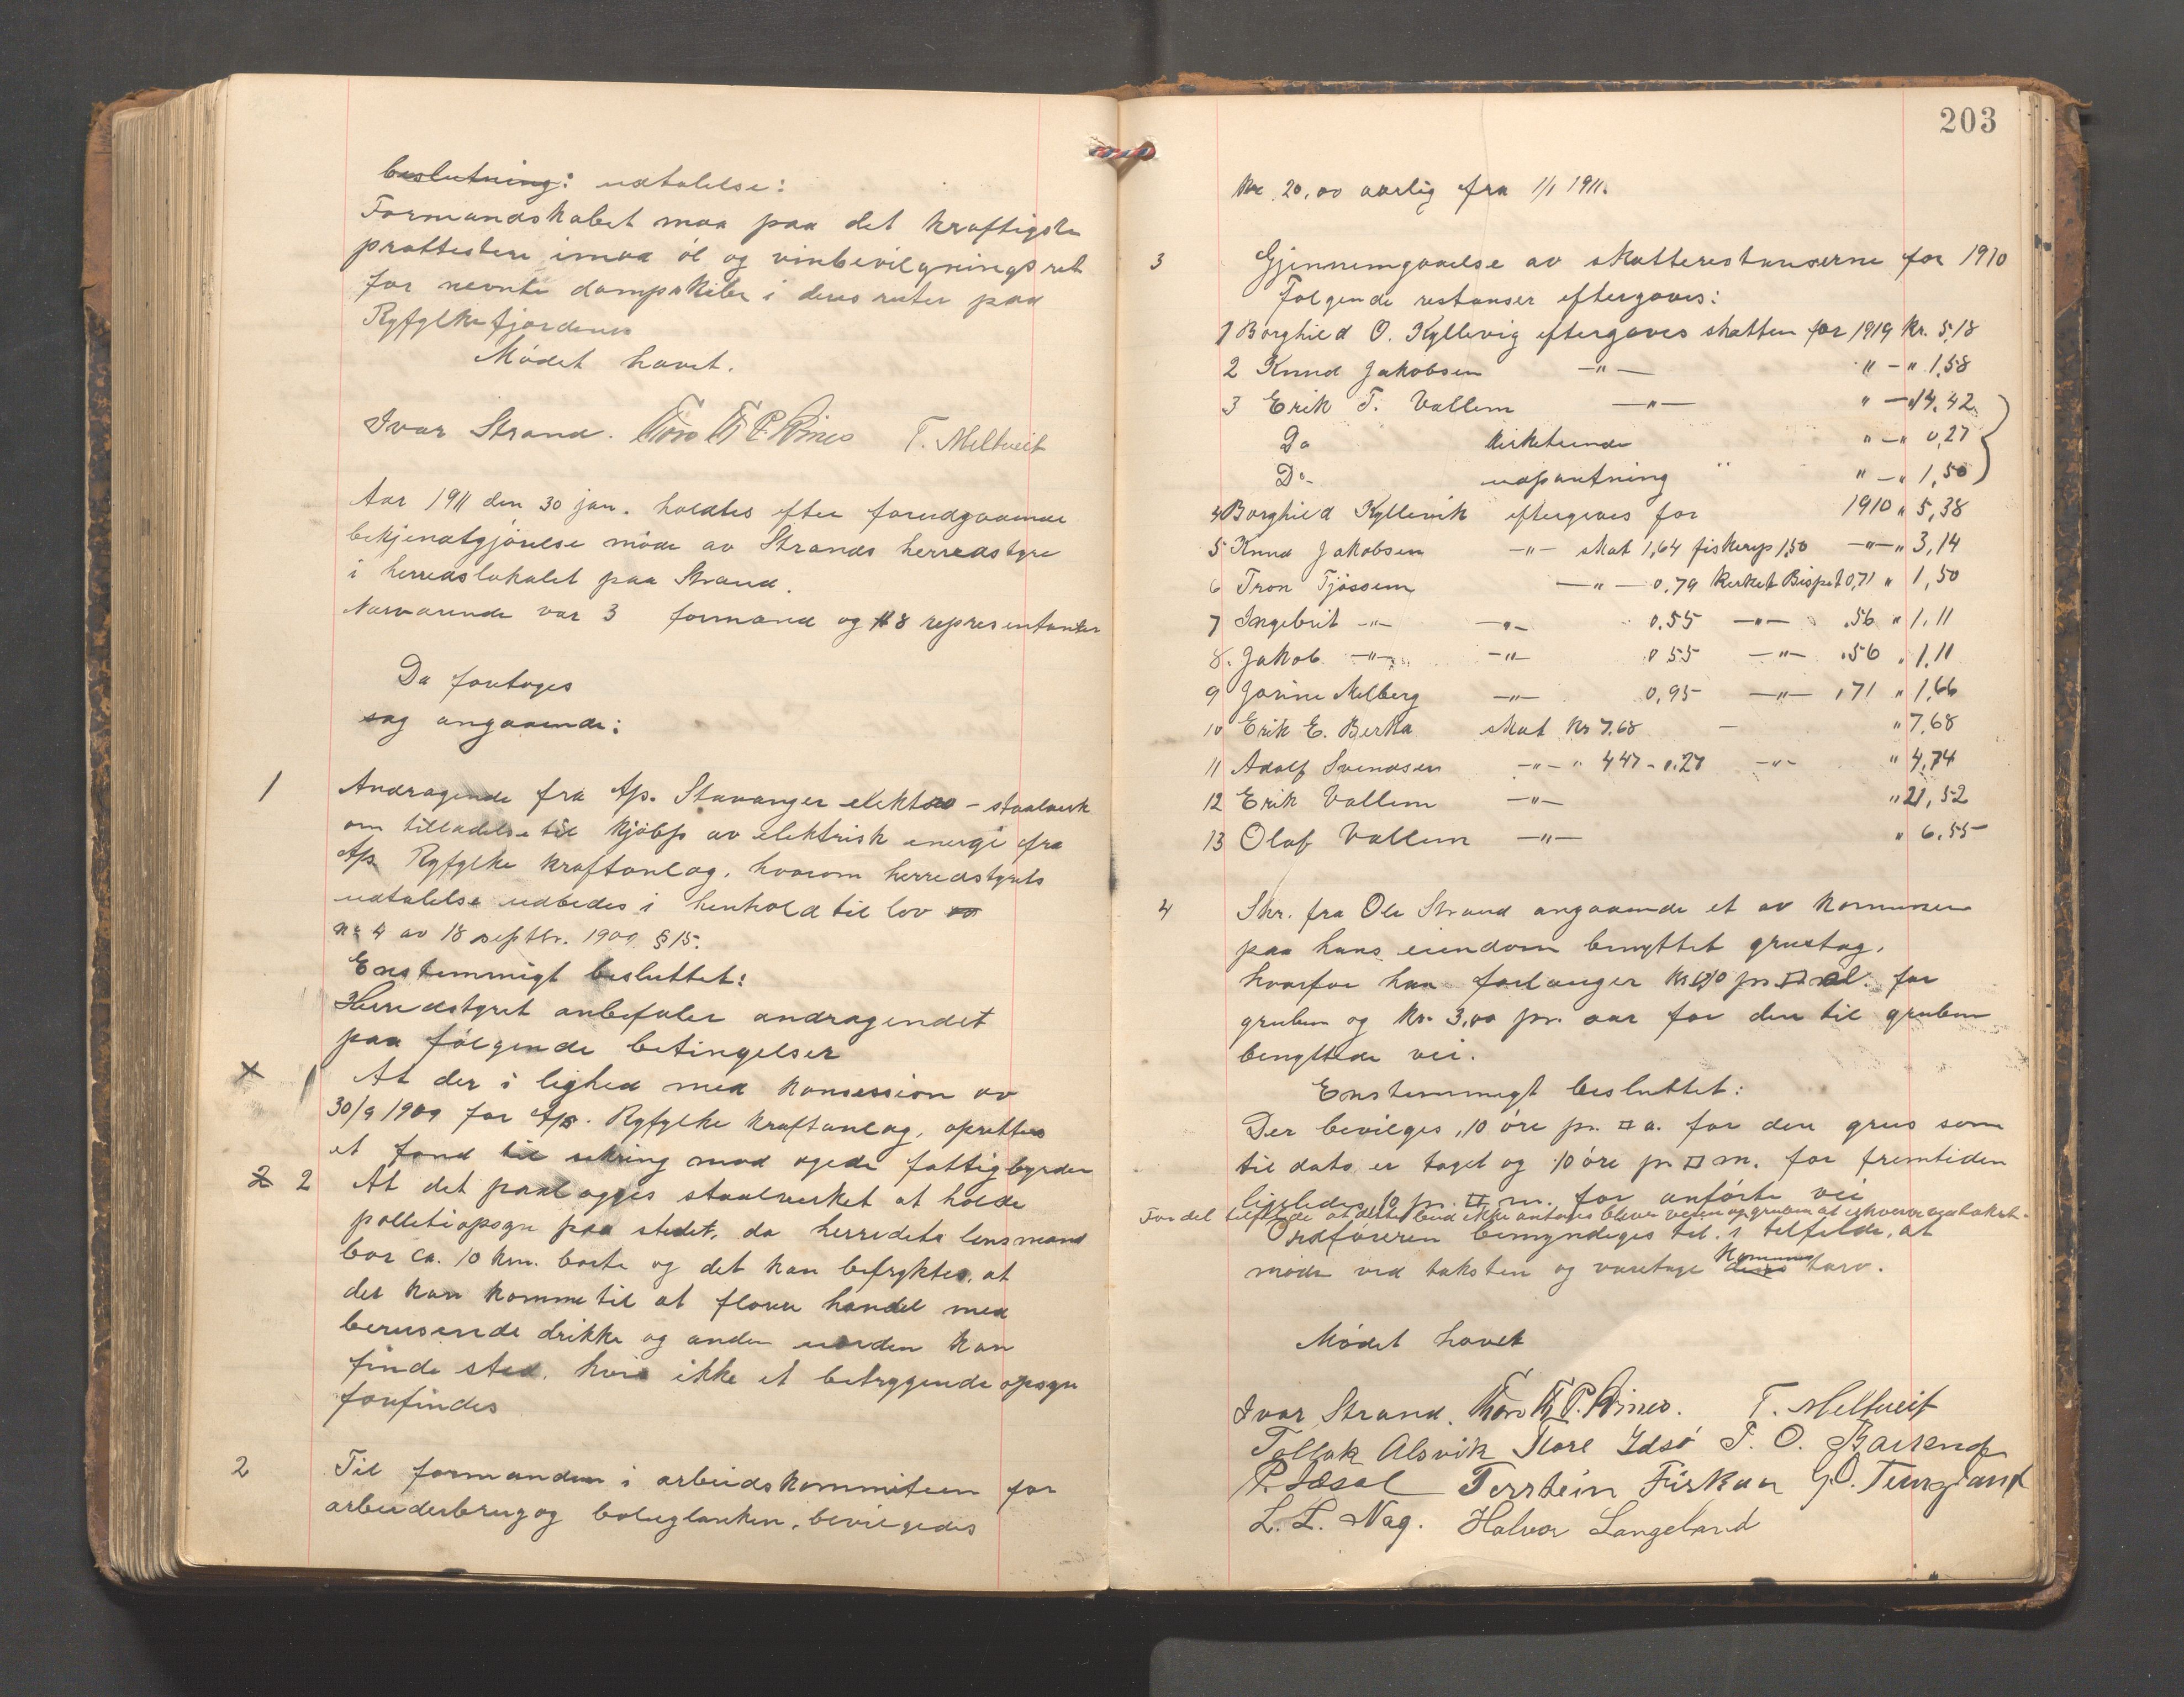 beslutning: udtalelse:
Formandskabet maa paa det kraftigste
prottestere imod øl og vinbevilgningsret
for nevnte dampskibe i deres ruter paa
Ryfylkefjordene
Mødet hævet.
Ivar Strand. T. Meltveit
Aar 1911 den 30 jan. holdtes efter forudgaaende
bekjendtgjørelse møde av Strands herredstyre
i herredslokalet paa Strand.
Nærværende var 3 formænd og 8 representanter
Da foretoges
sag angaaende:
1 Andragende fra A/s. Stavanger elektro - staalverk
om tilladelse til kjøb av elektrisk energi fra
A/s Ryfylke kraftanlæg, hvorom herredstyrets
udtalelse udbedes i henhold til lov
No 4 av 18 septbr. 1909 § 15.
Enstemmigt besluttet:
Herredstyret anbefaler andragendet
paa følgende betingelser
1 At der i lighed med konsession av
30/9 1909 for A/s. Ryfylke kraftanlæg, oprettes
et fond til sikring mod øgede fattigbyrder
2 2 At det paalægges staalverket at holde
polletiopsyn paa stedet, da herredets lensmand
bor ca. 10 km. borte og det kan befryktes, at
der kan komme til at florere handel med
berusende drikke og anden uorden kan
finde sted, hvis ikke et betryggende opsyn
forefindes
2 Til formanden i arbeidskommiteen for
arbeiderbrug og boliglaanken, bevilgedes
203
kr. 20,00 aarlig fra 1/1 1911.
3 Gjennemgaaelse av skatterestanserne for 1910
Følgende restanser eftergaves:
1 Borghild O. Kyllevig eftergaves skatten for 1919 kr. 5,18
2 Knud Jakobsen —"— " — " 1,58
3 Erik T. Vallem —"— " — " 14,42
Do kirketiende " — " 0,27
Do udpantning " — " 1,50
4 Borghild Kyllevik eftergives for 1910 " 5,38
5 Knud Jakobsen —"— skat 1,64 fiskerop 1,50 —"— " 3,14
6 Tron Tjøssem —"— 0,79 kirket Bispet 0,71 " 1,50
7 Ingebrit —"— —"— 0.55 —"— .56 " 1.11
8. Jakob —"— —"— 0 55 —"— .56 " 1,11
9 Jorine Melberg —"— 0,95 —"— ,71 " 1,66
10 Erik E. Berka skat kr 7,68 — " 7,68
11 Adolf Svendsen —"— " 4 47 - 0.27 —"— " 4,74
12 Erik Vallem —"— " 21,52
13 Olaf Vallem —"— " 6.55
4 Skr. fra Ole Strand angaaende et av kommunen
paa hans eiendom benyttet grustag,
hvorfor han forlanger kr 0,10 pr. □ al. for
gruben og kr. 3,00 pr. aar for den til gruben
benyttede vei.
Enstemmigt besluttet:
Der bevilges ,10 øre pr. □ a. for den grus som
til dato er taget og 10 øre pr □ m. for fremtiden
ligeledes 10 pr. □ m. for anførte vei
For det tilfælde at dette bud ikke antages bliver veien og gruben at erhverve ved takst.
Ordføreren bemyndiges til, i tilfelde, at
møde ved taksten og varetage deres kommunens tarv.
Mødet hævet
Ivar Strand. T. Meltveit
Tollak Alsvik Tore Idsø T. O. Barkend
P. Terstein Fiskaa G. O. Tungland
L. L. Nag. Halvor Langeland